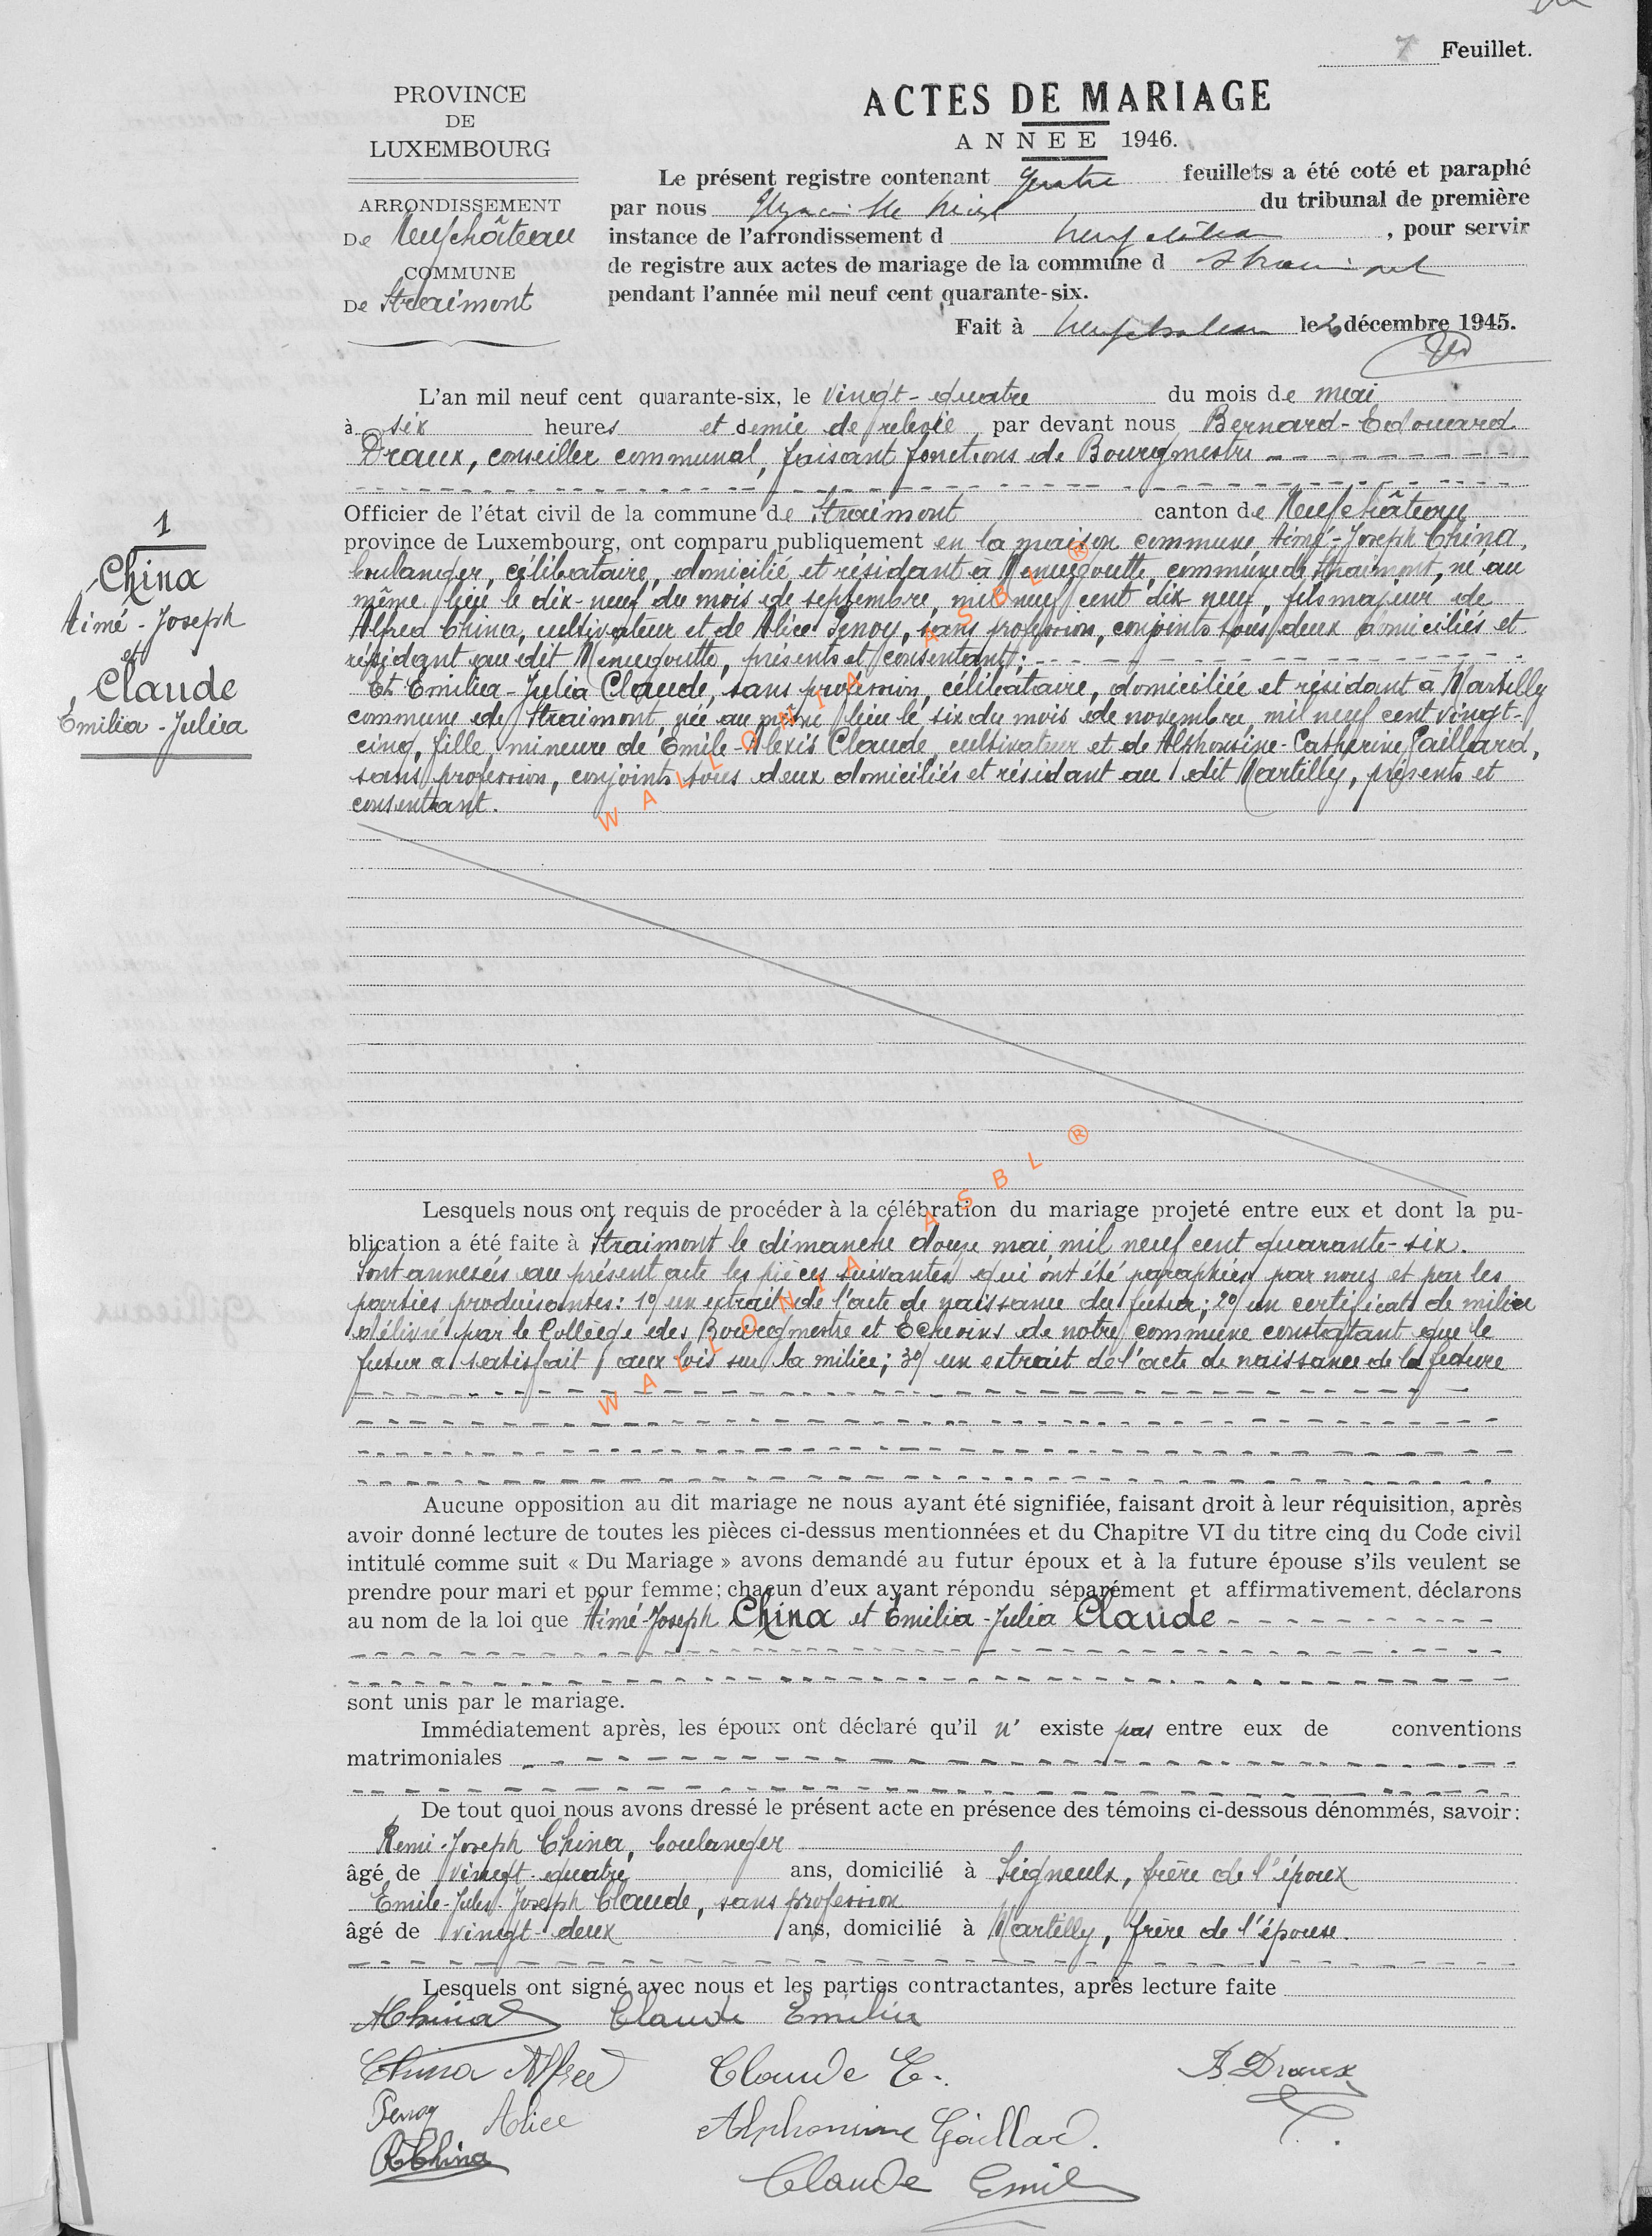 7 Feuillet.
PROVINCE
DE
LUXEMBOURG
ARRONDISSEMENT
De Neufchâteau
COMMUNE
De Straimont
ACTES DE MARIAGE
ANNEE 1946.
Le présent registre contenant quatre feuillets a été coté et paraphé
par nous du tribunal de première
instance de l'arrondissement d Neufchâteau, pour servir
de registre aux actes de mariage de la commune d Straimont
pendant l'année mil neuf cent quarante-six.
Fait à Neufchateau le décembre 1945.
L'an mil neuf cent quarante-six, le vingt-quatre du mois de mai
à six heures et demie de relevée par devant nous Bernard-Edouard
Draux, conseiller communal, faisant fonctions de Bourgmestre
Officier de l'état civil de la commune de Straimont canton de Neufchâteau
province de Luxembourg, ont comparu publiquement en la maison commune Aimé-Joseph China,
boulanger, célibataire, domicilié et résidant à Menugoutte, commune de Straimont, né au
même lieu le dix-neuf du mois de septembre mil neuf cent dix neuf, fils majeur de
Alfred China, cultivateur et de Alice Penoy, sans profession, conjoints tous deux domiciliés et
résidant au dit Menugoutte, présents et consentant;
Et Emilia-Julia Claude, sans profession, célibataire, domiciliée et résidant à Martilly
commune de Straimont, née au même lieu le six du mois de novembre mil neuf cent vingt-
cinq, fille mineure de Emile-Alexis Claude, cultivateur et de Alphonsine-Catherine Gaillard,
sans profession, conjoints tous deux domiciliés et résidant au dit Martilly, présents et
consentant.
1
China
Aimé-Joseph
et
Claude
Emilia-Julia
WALLONIA ASBL ®
Lesquels nous ont requis de procéder à la célébration du mariage projeté entre eux et dont la pu-
blication a été faite à Straimont le dimanche douze mai mil neuf cent quarante-six.
Sont annexées au présent acte les pièces suivantes qui ont été paraphées par nous et par les
parties produisantes: 1°/ un extrait de l'acte de naissance du futur; 2°/ un certificat de milice
délivré par le Collège des Bourgmestre et Echevins de notre commune constatant que le
futur a satisfait aux lois sur la milice; 3°/ un extrait de l'acte de naissance de la future
WALLONIA ASBL ®
Aucune opposition au dit mariage ne nous ayant été signifiée, faisant droit à leur réquisition, après
avoir donné lecture de toutes les pièces ci-dessus mentionnées et du Chapitre VI du titre cinq du Code civil
intitulé comme suit « Du Mariage » avons demandé au futur époux et à la future épouse s'ils veulent se
prendre pour mari et pour femme; chacun d'eux ayant répondu séparément et affirmativement. déclarons
au nom de la loi que Aimé-Joseph China et Emilia-Julia Claude
sont unis par le mariage.
Immédiatement après, les époux ont déclaré qu'il n' existe pas entre eux de conventions
matrimoniales
De tout quoi nous avons dressé le présent acte en présence des témoins ci-dessous dénommés, savoir:
Remi-Joseph China, boulanger
âgé de vingt-quatre ans, domicilié à Léglise, frère de l'époux
Emile-Jules-Joseph Claude, sans profession
âgé de vingt-deux ans, domicilié à Martilly, frère de l'épouse.
Lesquels ont signé avec nous et les parties contractantes, après lecture faite
AChina Claude Emilia
China Alfred Claude E. B Draux
Penoy Alice Alphonsine Gaillard.
RChina Claude Emile